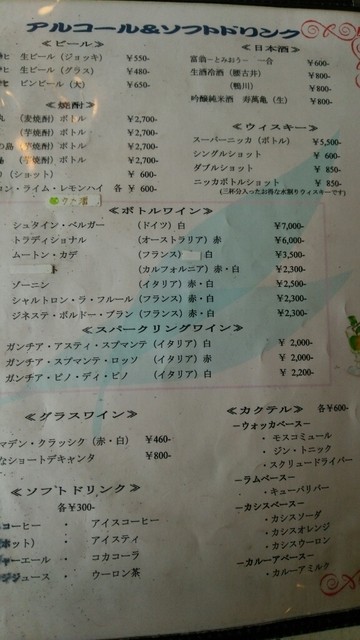 アルコール&ソフトドリンク
≪ビール≫
生ビール (ジョッキ) ¥550-
生ビール (グラス) ¥480-
ビンビール (大) ¥650-
≪日本酒≫
富翁―とみおう― 一合 ¥600-
生酒冷酒 (腰古井) ¥800-
(鴨川) ¥800-
吟醸純米酒 寿萬亀 (生) ¥800-
≪焼酎≫
(麦焼酎) ボトル ¥2,700-
(芋焼酎) ボトル ¥2,700-
の島 (芋焼酎) ボトル ¥2,700-
(芋焼酎) ボトル ¥2,700-
(ショット) ¥ 600-
ライム・レモンハイ 各 ¥ 600-
≪ウィスキー≫
スーパーニッカ (ボトル) ¥5,500-
シングルショット ¥ 600-
ダブルショット ¥ 850-
ニッカボトルショット ¥ 850-
(三杯分入ったお得な水割りウィスキーです)
≪ボトルワイン≫
シュタイン・ベルガー (ドイツ) 白 ¥7,000-
トラディショナル (オーストラリア) 赤 ¥6,000-
ムートン・カデ (フランス) ¥3,500-
(カルフォルニア) 赤・白 ¥2,300-
ゾーニン (イタリア) 赤・白 ¥2,500-
シャルトロン・ラ・フルール (フランス) 赤・白 ¥2,300-
ジネステ・ボルドー・ブラン (フランス) 赤・白 ¥2,300-
≪スパークリングワイン≫
ガンチア・アスティ・スプマンテ (イタリア) 白 ¥ 2,000-
ガンチア・スプマンテ・ロッソ (イタリア) 赤 ¥ 2,000-
ガンチア・ピノ・ディ・ピノ (イタリア) 白 ¥ 2,200-
≪グラスワイン≫
マデン・クラッシク (赤・白) ¥460-
なショートデキャンタ ¥800-
≪カクテル≫ 各¥600-
―ウォッカベース―
・モスコミュール
・ジン・トニック
・スクリュードライバー
―ラムベース―
・キューバリバー
―カシスベース―
・カシスソーダ
・カシスオレンジ
・カシスウーロン
―カルーアベース―
・カルーアミルク
≪ソフトドリンク≫
各¥300-
コーヒー ・ アイスコーヒー
ホット) ・ アイスティ
ャーエール ・ コカコーラ
ジュース ・ ウーロン茶